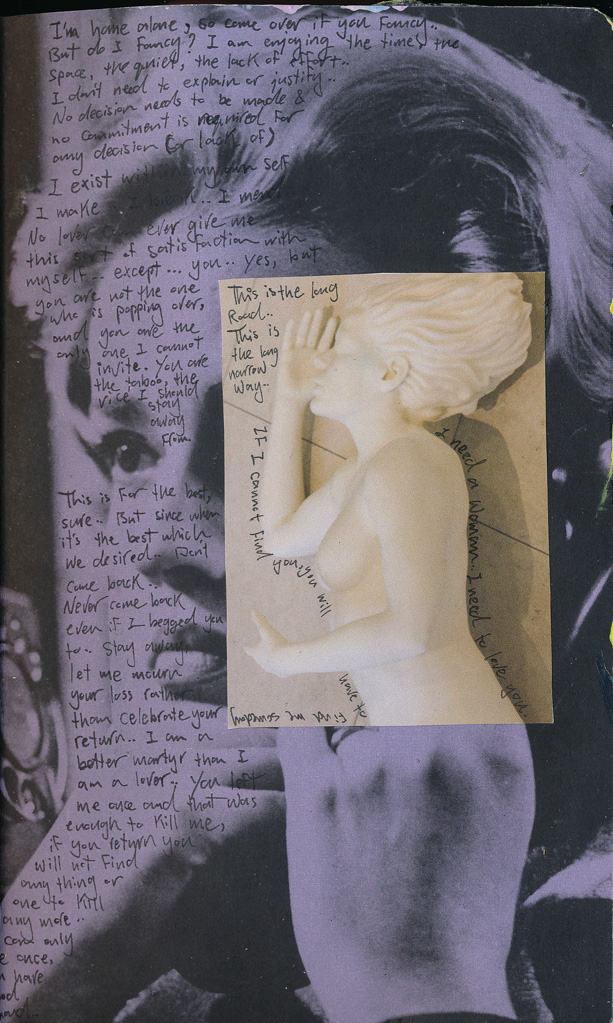 I'm home alone, so come over if you fancy..
But do I fancy? I am enjoying the time, the
space, the quiet, the lack of effort..
I don't need to explain or justify..
No decision needs to be made &
no commitment is required for
any decision (or lack of)
I exist within my own self
I make
No lover ever give me
this sort of satisfaction with
myself.. except... you.. yes, but
you are not the one
who is popping over,
and you are the
only one I cannot
invite. You are
the taboo, the
vice I should
stay
away
from.
This is for the best,
sure.. But since when
it's the best which
we desired.. Don't
come back..
Never come back
even if I begged you
to.. Stay away,
let me mourn
your loss rather
than celebrate your
return.. I am a
better martyr than I
am a lover.. You left
me once and that was
enough to kill me,
if you return you
will not find
any thing or
one to kill
any more..
can only
once,
have
This is the long
Road..
This is
the long
narrow
way..
If I cannot find you, you will
have to
find me someday
I need a woman.. I need to love you..